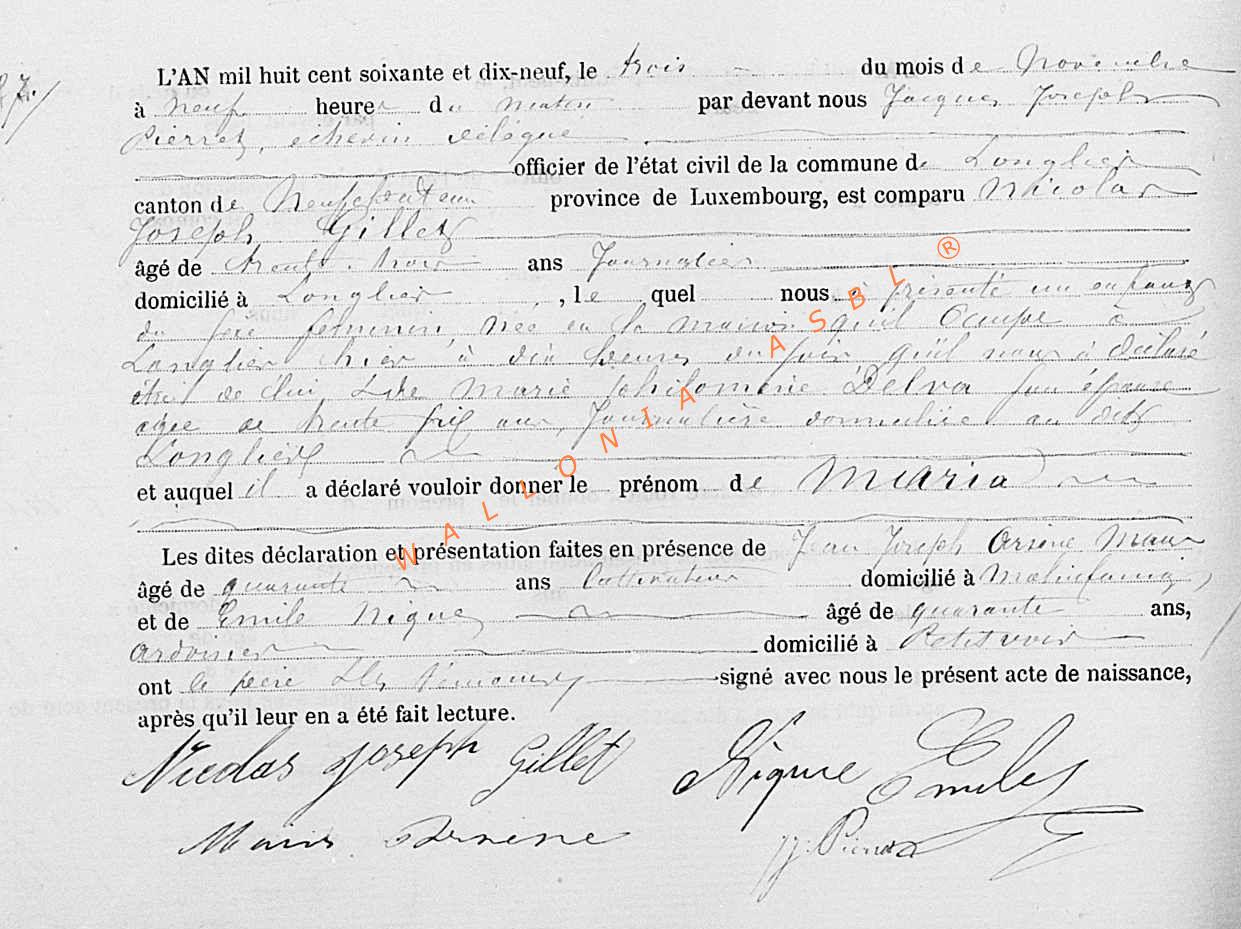 L'AN mil huit cent soixante et dix-neuf, le trois du mois de Novembre
à neuf heures du matin par devant nous Jacques Joseph
Pierret, échevin délégué
officier de l'état civil de la commune de Longlier
canton de Neufchateau province de Luxembourg, est comparu Nicolas
Joseph Gillet
âgé de trente trois ans Journalier
domicilié à Longlier, lequel nous a présenté un enfant
du sexe feminin née en la maison qu'il occupe à
Longlier hier à dix heures du soir qu'il nous à déclaré
être de lui & de Marie philomène Delva son épouse
agée de trente six ans, Journalière domiciliée au dit
Longlier
et auquel il a déclaré vouloir donner le prénom de Maria
Les dites déclaration et présentation faites en présence de Jean Joseph Arsène
âgé de quarante ans Cultivateur domicilié à
et de Emile Nique âgé de quarante ans,
ardoisier domicilié à Petitvoir
ont le père & les témoins signé avec nous le présent acte de naissance,
après qu'il leur en a été fait lecture.
Nicolas Joseph Gillet Nique Emile
Arsène JJ. Pierret
WALLONIA ASBL ®